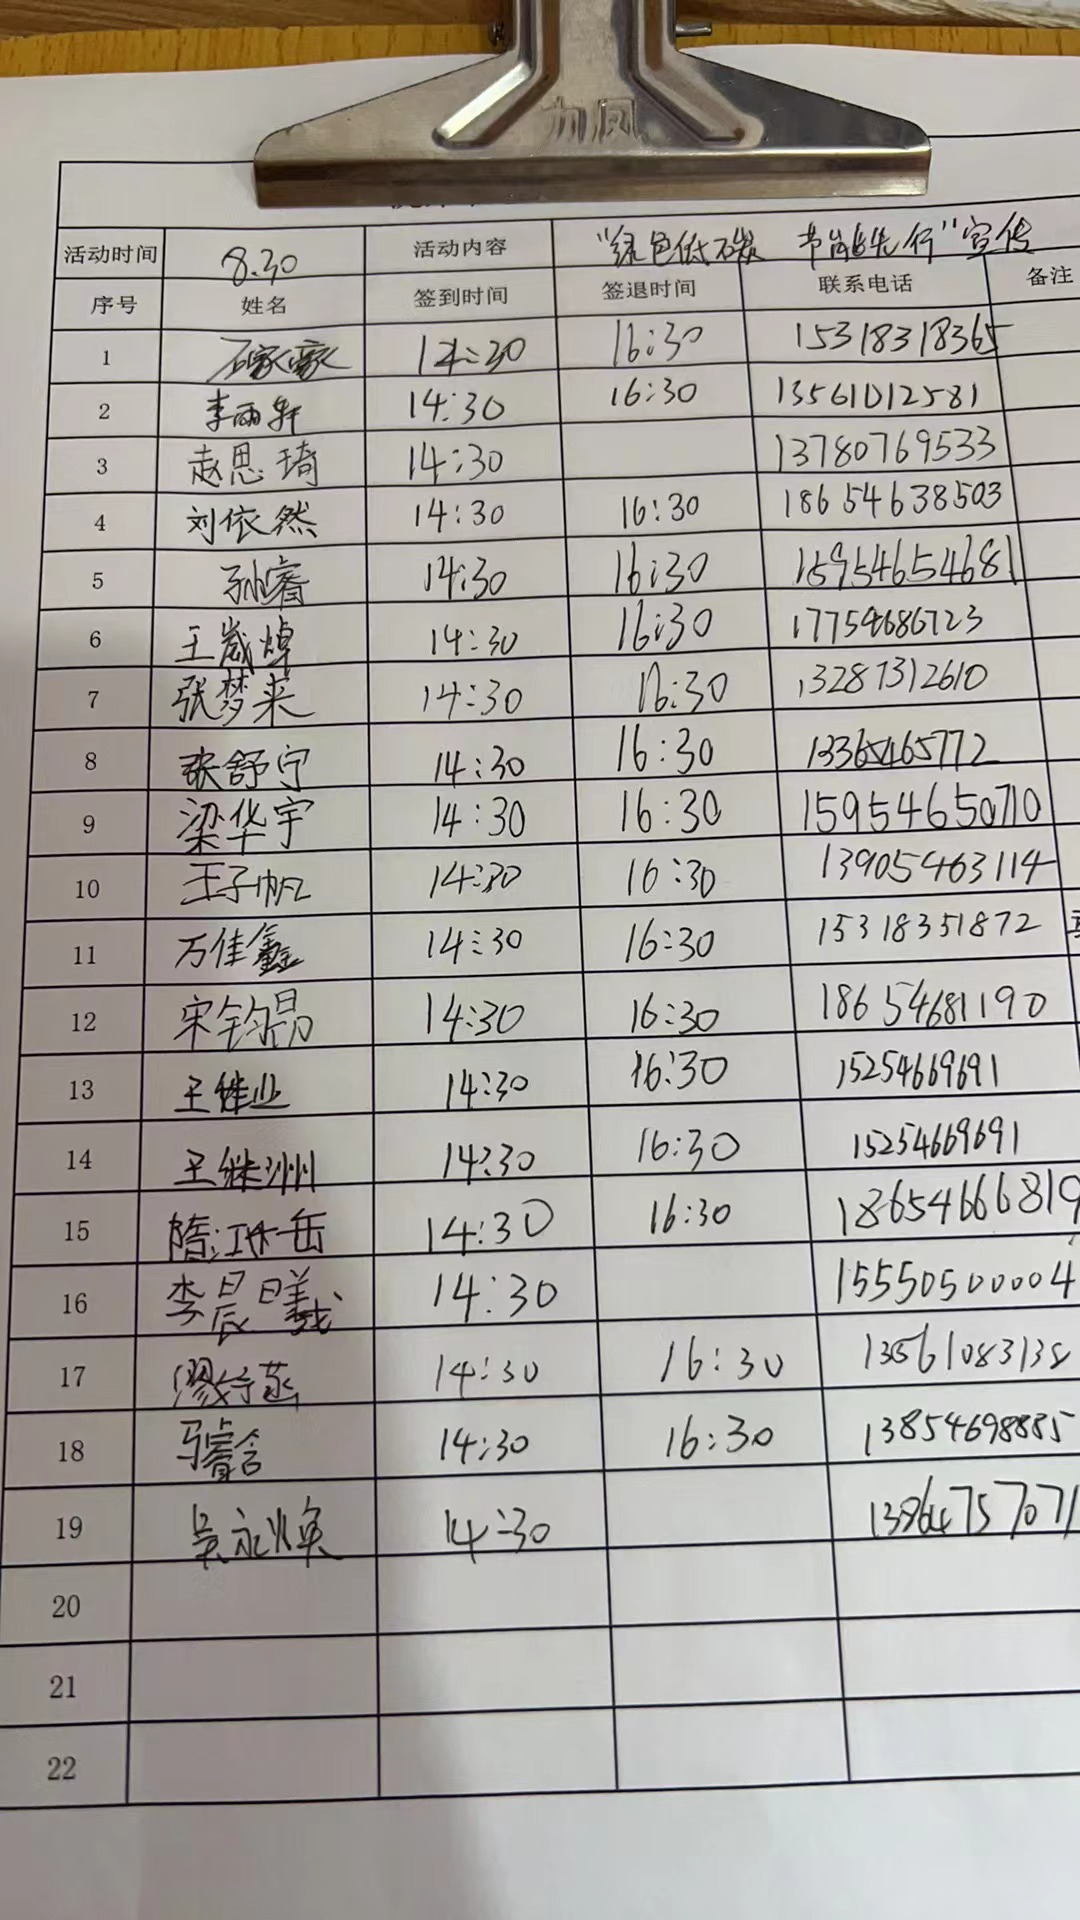 力风
活动时间 8.30 活动内容 "绿色低碳 节能先行"宣传
序号 姓名 签到时间 签退时间 联系电话 备注
1 石家豪 14:30 16:30 15318318365
2 李雨轩 14:30 16:30 13561012581
3 赵思琦 14:30 13780769533
4 刘依然 14:30 16:30 18654638503
5 孙睿 14:30 16:30 15954654681
6 王崴焯 14:30 16:30 17754686723
7 张梦来 14:30 16:30 13287312610
8 张舒宁 14:30 16:30 13365465772
9 梁华宇 14:30 16:30 15954650710
10 王子帆 14:30 16:30 13905463114
11 万佳鑫 14:30 16:30 15318351872
12 宋钧昂 14:30 16:30 18654681190
13 王继业 14:30 16:30 15254669691
14 王继洲 14:30 16:30 15254669691
15 隋江岳 14:30 16:30 18654666819
16 李晨曦 14:30 15550500004
17 14:30 16:30 13561083138
18 马睿含 14:30 16:30 13854698885
19 吴永焕 14:30 13864757071
20
21
22